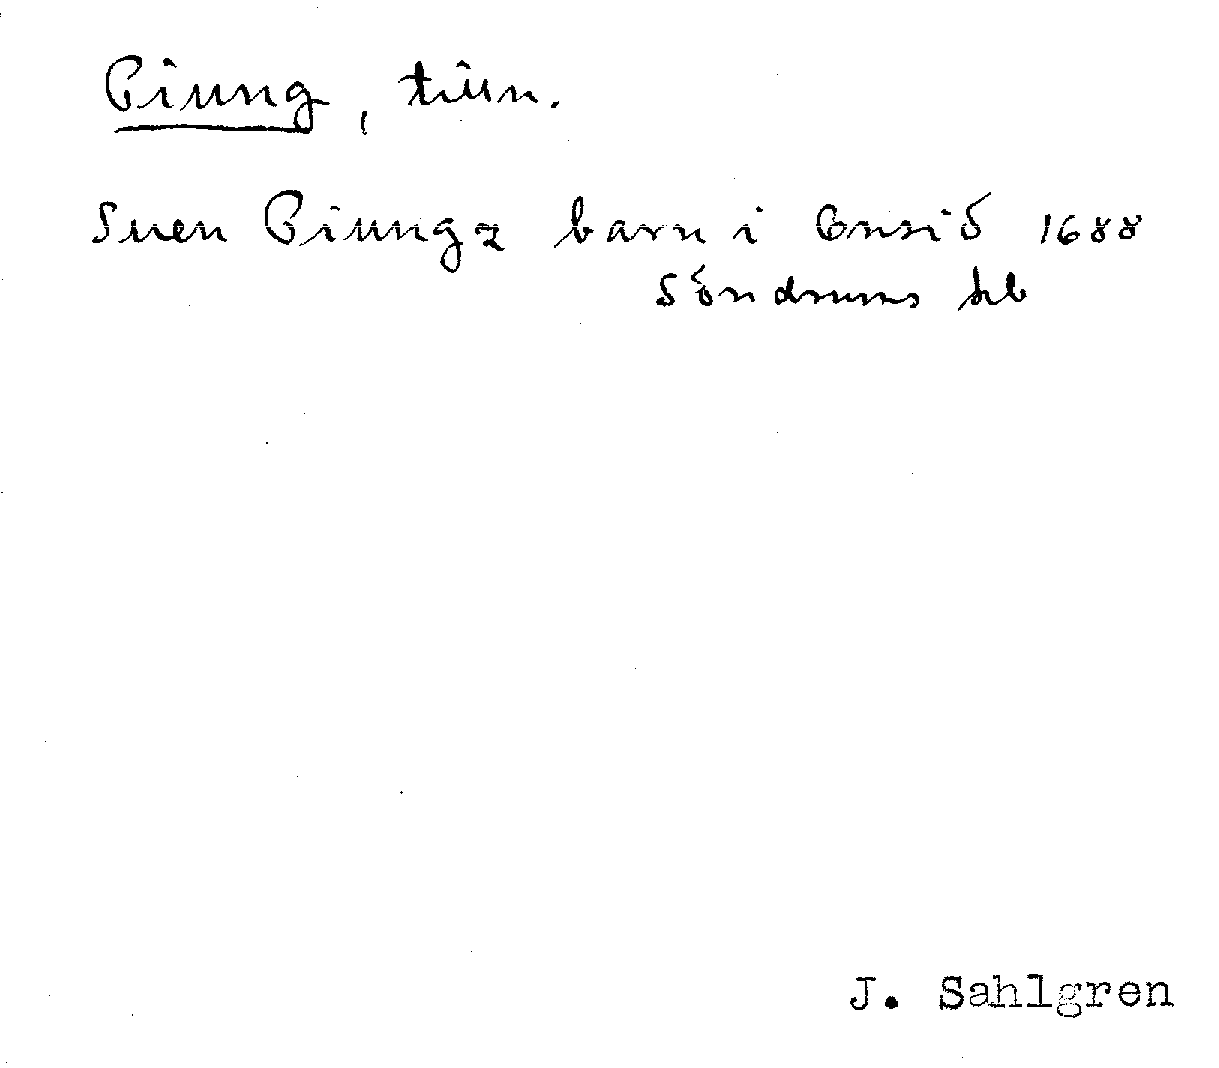 Piung, tilln.
Suen Piungz barn i Onsiö 1688
Söndrums kb
J. Sahlgren